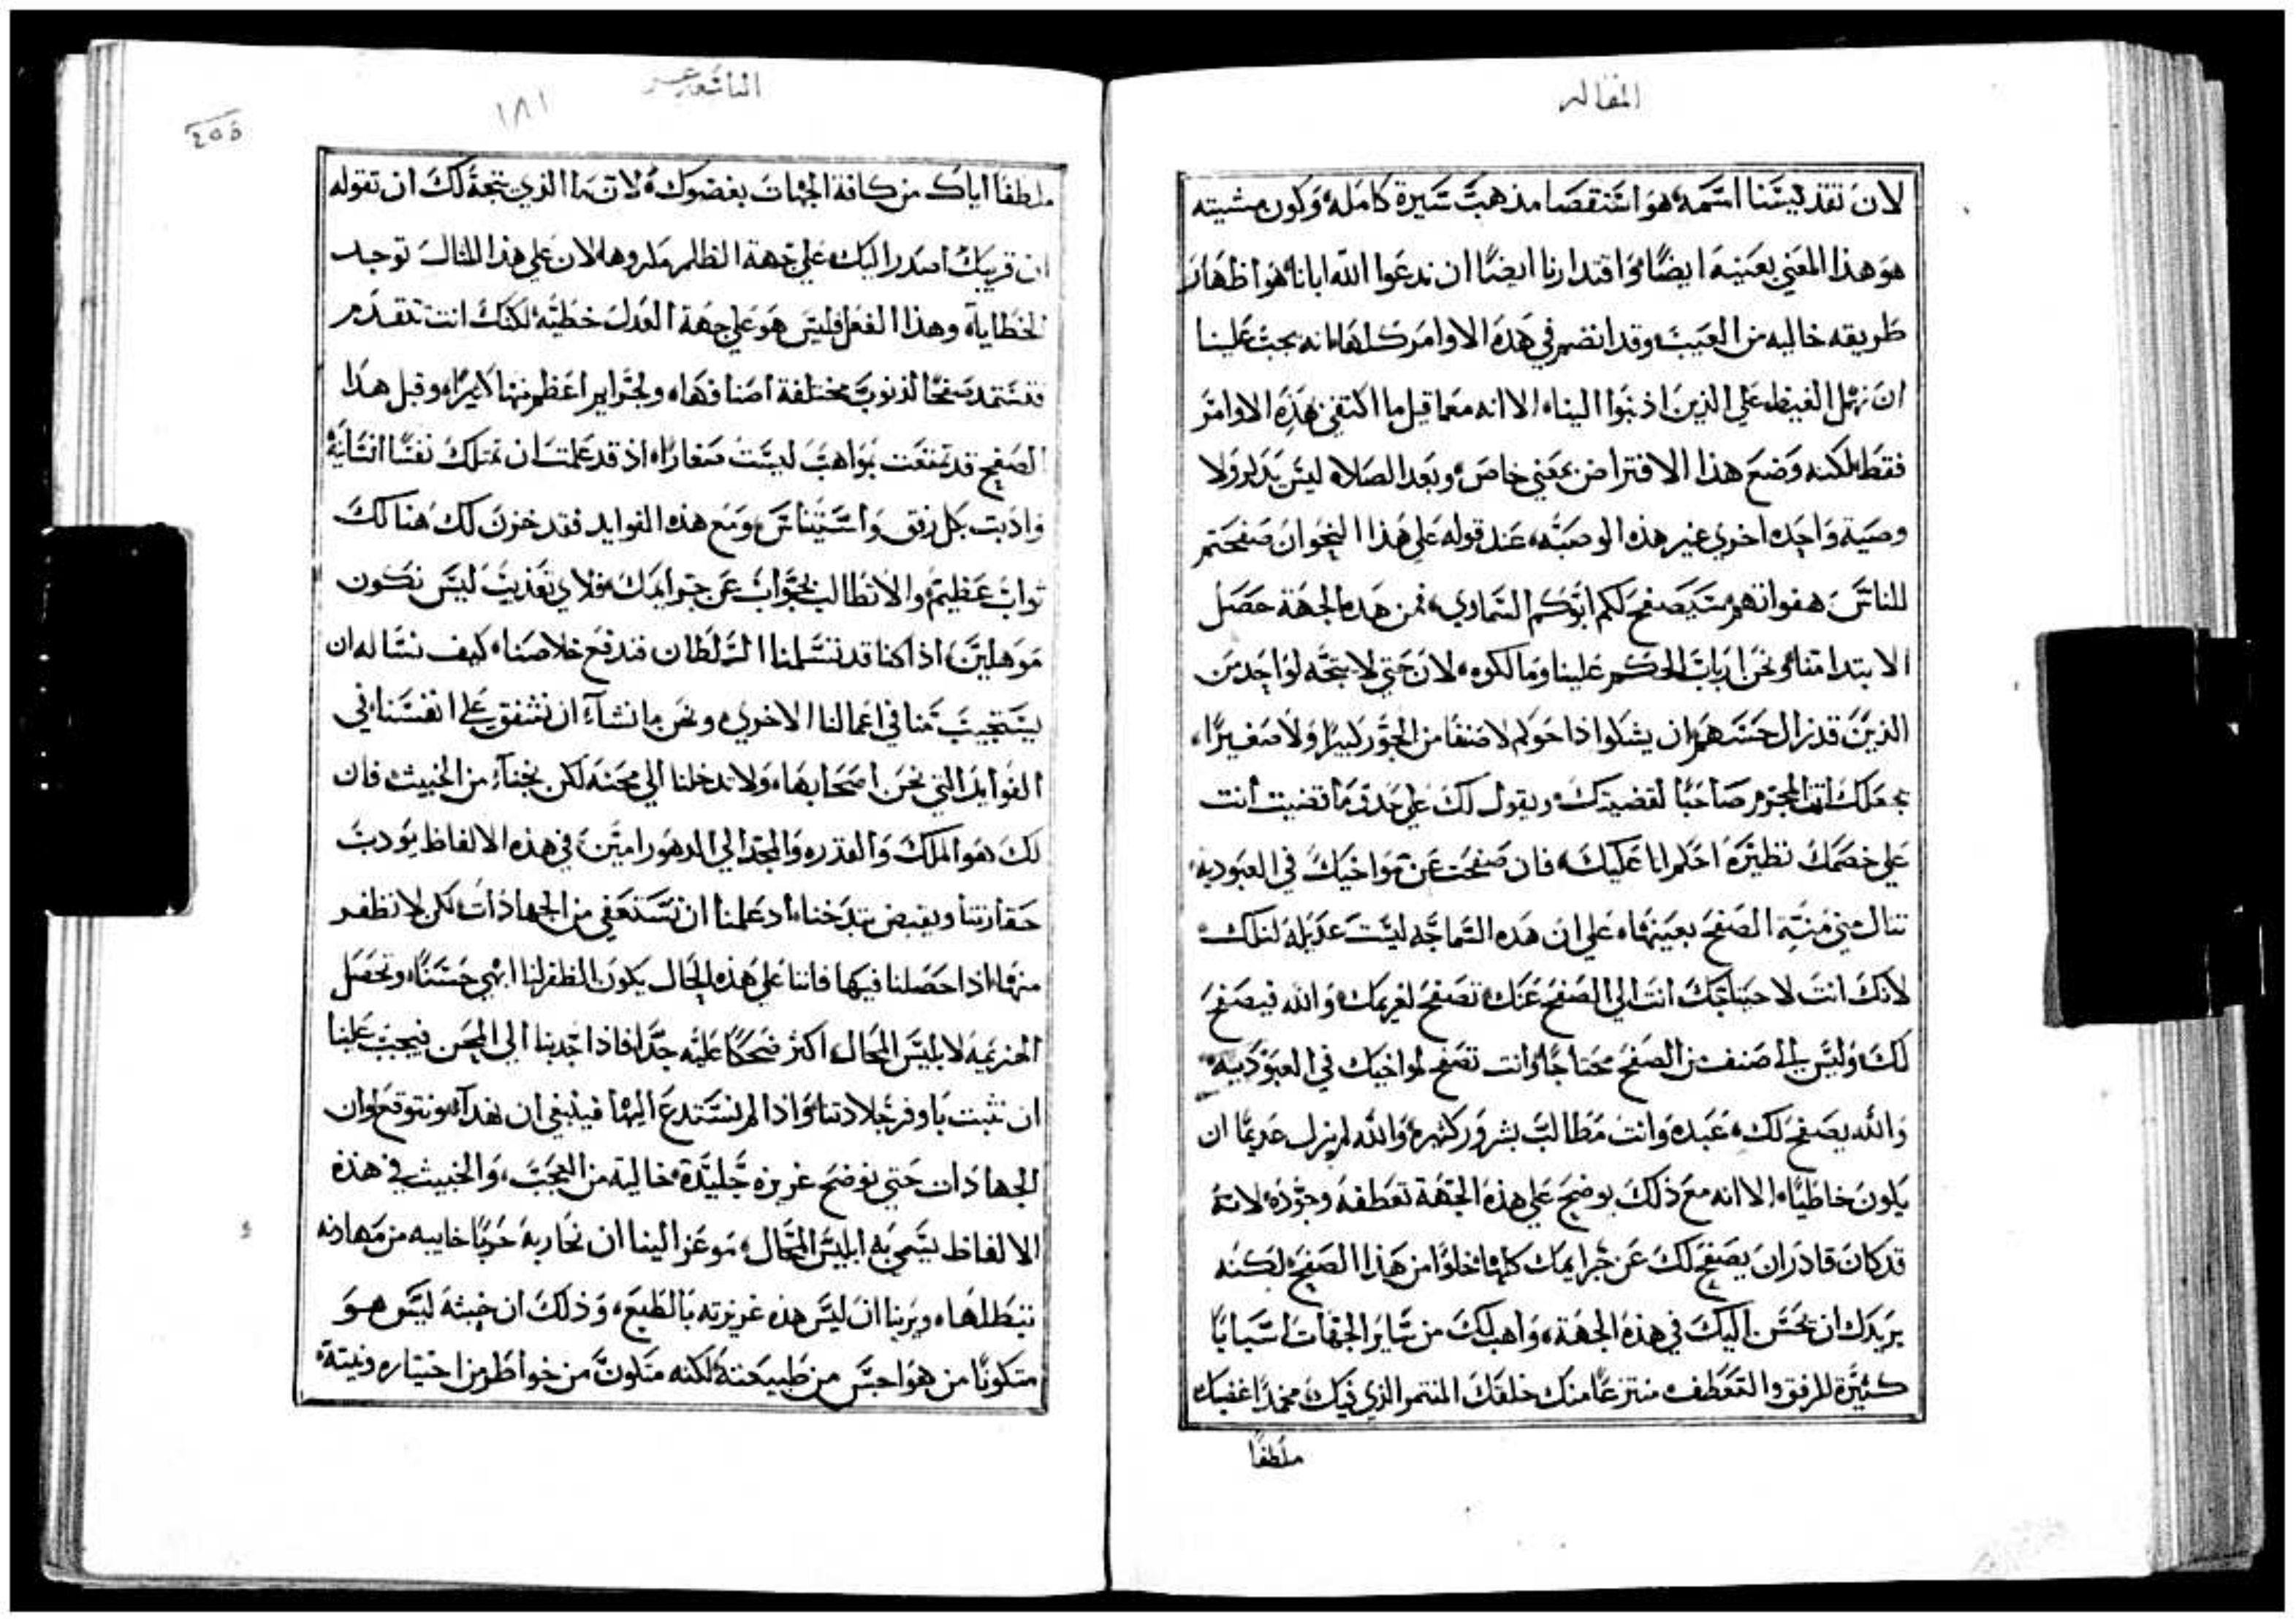 المقاله
لان تقديسنا اسمه هو استقصا مذهب سيرة كامله وكون مشيته
هو هذا المعني بعينه ايضا واقتدارنا ايضا ان ندعوا الله ابانا هو اظهار
طريقه خاليه من العيب وقد انضم في هذه الاوامر كلها انه يجب علينا
ان نهمل الغيظ علي الذين اذنبوا الينا الا انه معما قيل ما اكتفي بهذه الاوامر
فقط لكنه وضع هذا الافتراض بمعني خاص وبعد الصلاه ليس يذكر ولا
وصية واحده اخري غير هذه الوصيه عند قوله علي هذا النحو ان صفحتم
للناس هفواتهم سيصفح لكم ابوكم السماوي فمن هذه الجهة حصل
الابتدا منا ونحن ارباب الحكم علينا ومالكوه لان حتي لا يتجه لواحد من
الذين قد زال حسهم ان يشكوا اذا حوكم لا صنفا من الجور كبيرا ولا صغيرا
يجعلك ايها المجرم صاحبا لقضيتك ويقول لك علي حذو ما تقضيت انت
علي خصمك نظيره احكم انا عليك فان صفحت عن مواخيك في العبوديه
تنال مني منية الصفح بعينها علي ان هذه السماجه ليست عديله لتلك
لانك انت لاحتياجك انت الي الصفح عنك تصفح لغريمك والله فيصفح
لك وليس الي صنف من الصفح محتاجا وانت تصفح لمواخيك في العبوديه
والله يصفح لك عبده وانت مطالب بشرور كثيره والله لم يزل عديما ان
يكون خاطيا الا انه مع ذلك يوضح علي هذه الجهة تعطفه وجوده لانه
قد كان قادرا ان يصفح لك عن جرايمك كلها خلوا من هذا الصفح لكنه
يريدك ان يحسن اليك في هذه الجهة واهب لك من ساير الجهات اسبابا
كثيرة للرفق والتعطف منتزعا منك خلقك المنتمر الذي فيك مخمدا غضبك
ملطفا
التاسعه عشر
١٨١
ملطفا اياك من كافة الجهات بعضوك لان ما الذي يتجه لك ان تقوله
ان قريبك اصدر اليك علي جهة الظلم مكروها لان علي هذا المثال توجد
الخطاياة وهذا الفعل فليس هو علي جهة العدل خطيه لكنك انت تتقدم
فتستمد صفحا لذنوب مختلفة اصنافها ولجراير اعظم منها كثيرا وقبل هذا
الصفح قد تمتعت بمواهب ليست صغارا اذ قد علمت ان تمتلك نفسا انسانيه
وادبت بكل رفق واستيناس ومع هذه الفوايد فقد خزن لك هنالك
ثواب عظيم والا تطالب بجواب عن جرايمك فلاي تعذيب ليس نكون
موهلين اذا كنا قد تسلمنا السلطان فندفع خلاصنا كيف نساله ان
يستجيب منا في اعمالنا الاخري ونحن ما نشاء ان نشفق علي انفسنا في
الفوايد التي نحن اصحابها ولا تدخلنا الي محنه لكن نجناء من الخبيث فان
لك هو الملك والقدره والمجد الي الدهور امين في هذه الالفاظ يودب
حقارتنا ويقبض تبذخنا اذ علمنا ان نستعفي من الجهادات لكن لا نظفر
منها اذا حصلنا فيها فاننا علي هذه الحال يكون الظفر لنا ابهي حسنا وتحصل
الهزيمه لابليس المحال اكثر ضحكا عليه جدا فاذا اجدبنا الي المحن فيجب علينا
ان نثبت باوفر جلادتنا واذا لم نستدع اليها فينبغي ان نهداء ونتوقع اوان
الجهادات حتي نوضح غريزه جليدة خالية من العجب والخبيث في هذه
الالفاظ يسمي به ابليس المحال موعزا الينا ان نحاربه حربا خاييه من مهادنه
نبطلها ويرينا ان ليس هذه غريزته بالطبع وذلك ان خبثه ليس هو
متكونا من هواجس من طبيعته لكنه متكون من خواطر من اختياره ونيته